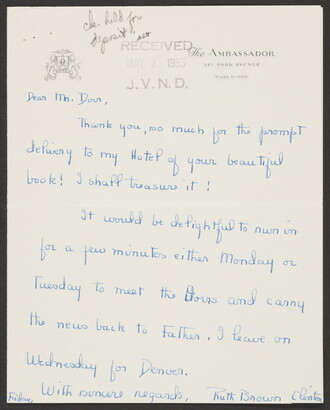 ck. held for
deposit!
RECEIVED
MAY 1953
J. V. N. D.
The AMBASSADOR
341 PARK AVENUE
Dear Mr. Dorr,
Thank you, so much for the prompt
delivery to my Hotel of your beautiful
book! I shall treasure it!
It would be delightful to run in
for a few minutes either Monday or
Tuesday to meet the Dorrs and carry
the news back to Father. I leave on
Wednesday for Denver.
With sincere regards,
Friday, Ruth Brown Clinton